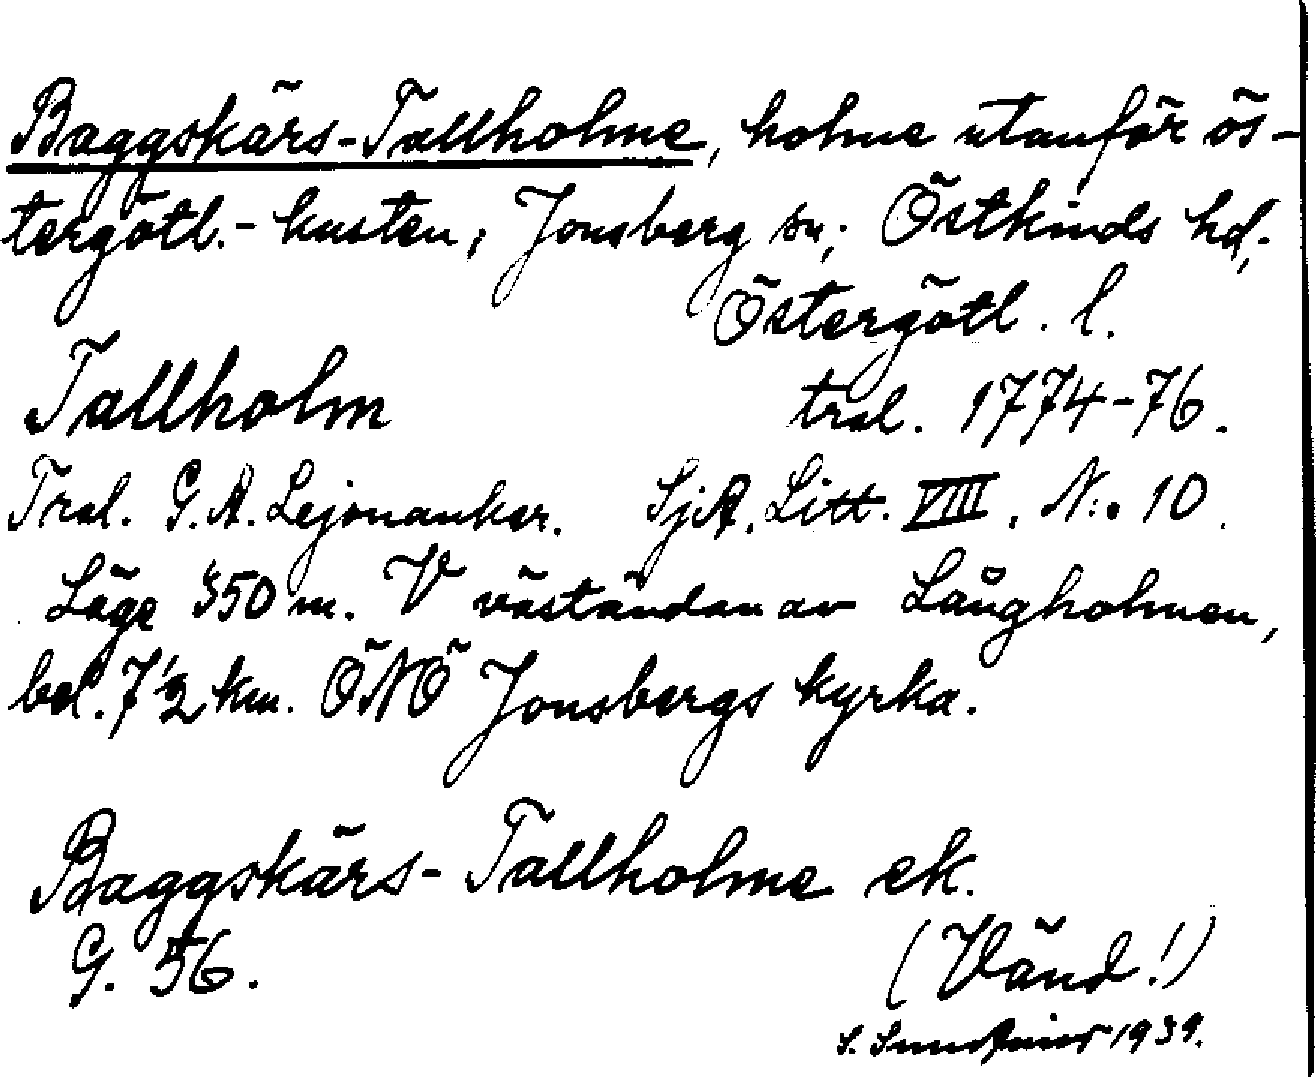 Baggskärs-Tallholme, holme utanför ös-
tergötl.-kusten, Jonsberg sn; Östkinds hd,
Östergötl. l.
Tallholm trol. 1774-76.
Trol. G.A. Lejonanker. SjA. Litt. VIII. N:o 10.
Läge 350 m. V väständan av Långholmen,
bel. 7 1/2 km. ÖNÖ Jonsbergs kyrka.
Baggskärs-Tallholme ek.
G. 56.
(Vänd!)
S. 1939.